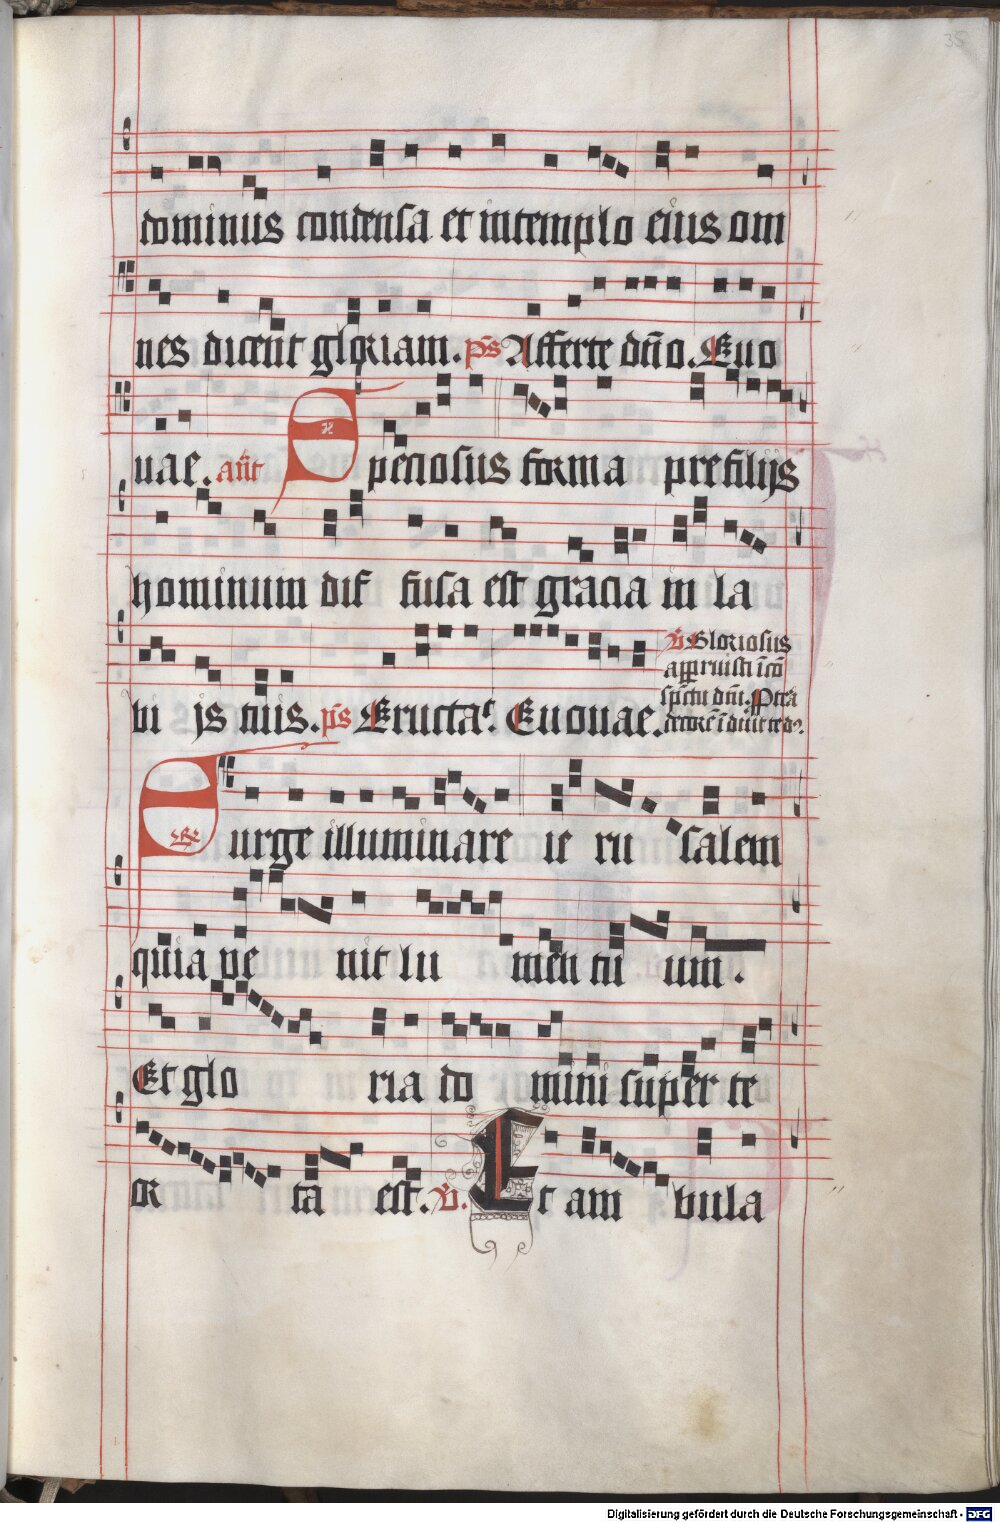 35
dominus condensa et in templo eius om
nes dicent gloriam. p̄s Afferte dn̄o. Euo
uae. ān̄t Speciosus forma pre filijs
hominum dif fusa est gracia in la
bi js tuis. p̄s Eructa. Euouae.
v̄ Gloriosus
apparuisti
Surge illuminare ie ru salem
quia ve nit lu men tu um.
Et glo ria do mini super te
or ta est. v̄. Et am bula
Digitalisierung gefördert durch die Deutsche Forschungsgemeinschaft - DFG